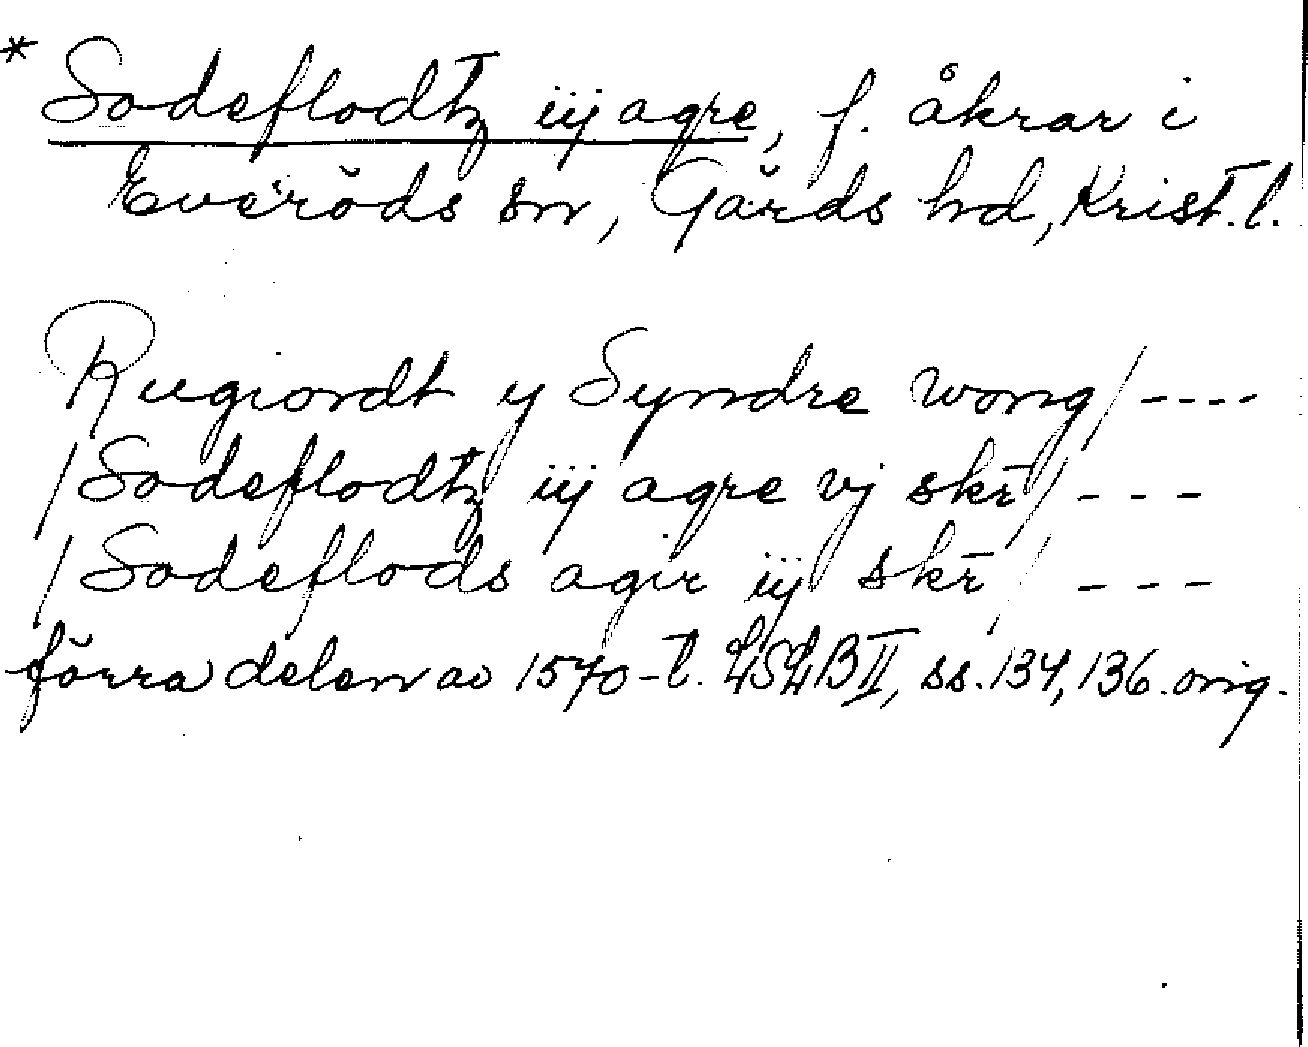 * Sodeflodtz iij agre, f. åkrar i
Everöds sn, Gärds hd, Krist. l.
Rugiordt y Syndre wong/----
/Sodeflodtz iij agre vj skr̄/---
/Sodeflods agir iij skr̄/---
förra delen av 1570-t. LSLB II, ss. 134, 136. orig.